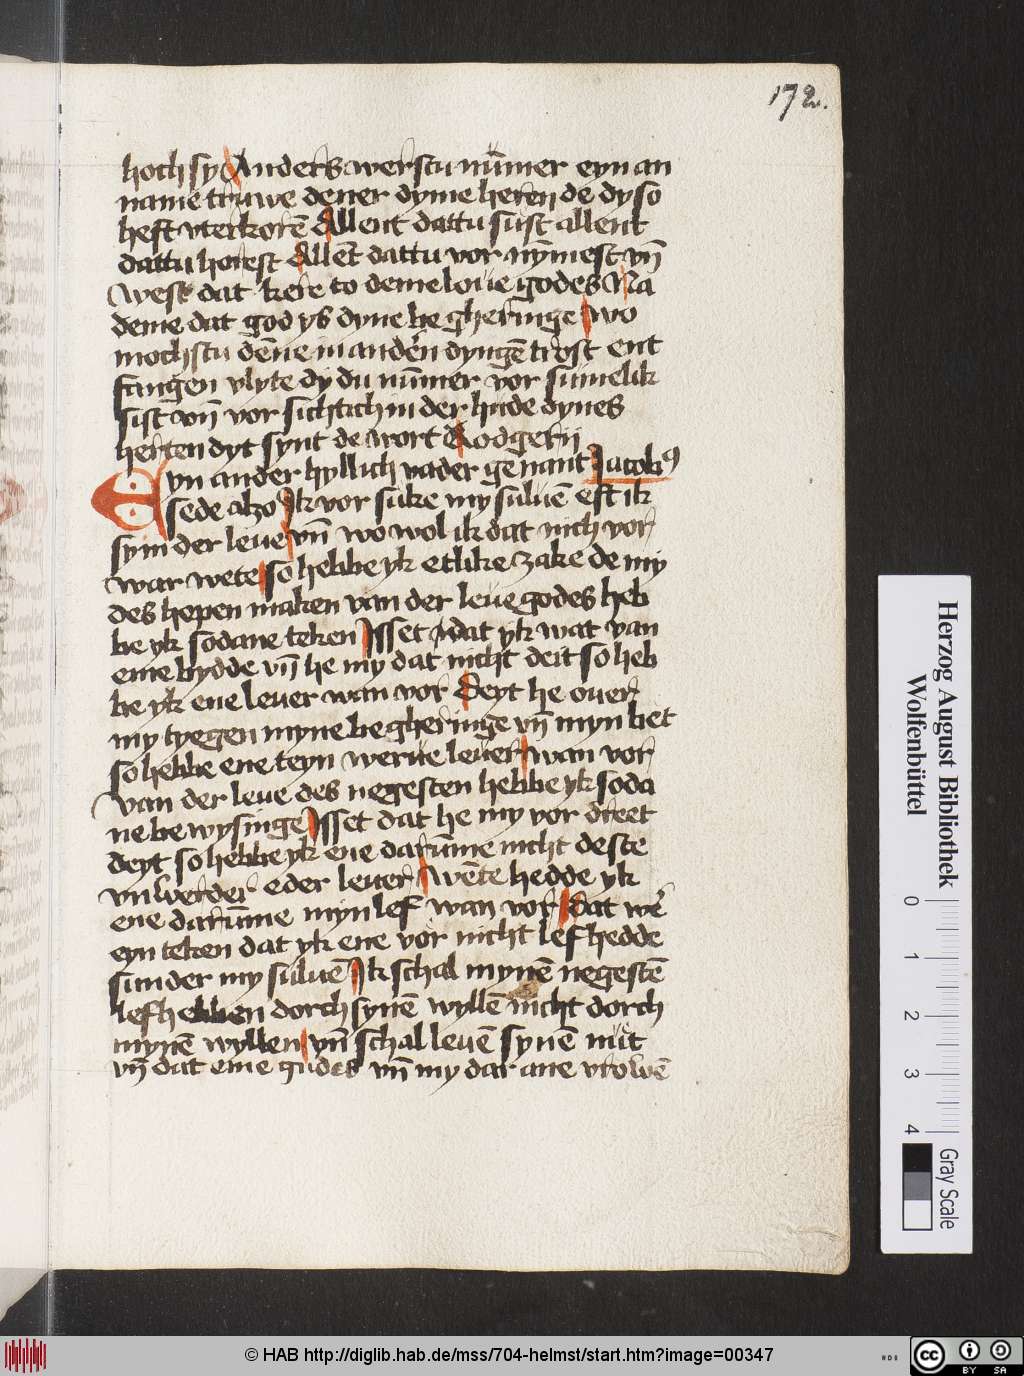 172.
hoch sy Anders werstu nūmer eyn an
name truwe dener dyme heren de dy so
heft vterkorē Allent dattu sust allent
dattu horest Allēt dattu vor nȳmest vn̄
west dat kere to deme loue godes Na
deme dat god ys dyne be gheringe wo
mochstu dēne in andern dyngē trost ent
fangen vlyte dy du nūmer vor sumelik
sist vn̄ vor sichtich in der hude dynes
herten dyt synt de wort Rodgerij
Eyn ander hyllich vader ge nant Jacobꝰ
sede alzo Jk vor suke my suluē eft ik
sy in der leue vn̄ wo wol ik dat nich vor
war wete so hebbe yk etlike zake de my
des hepen maken van der leue godes heb
be yk sodane teken Jsset dat yk wat van
eme bydde vn̄ he my dat nicht deit so heb
be yk ene leuer wan vor Deyt he ouer
my tyegen myne be gheringe vn̄ myn bet
so hebbe ene teyn werue leuer wan vor
van der leue des negesten hebbe yk soda
ne be wysinge Jsset dat he my vor dreet
deyt so hebbe yk ene darūme nicht deste
vn werder eder leuer wēte hedde yk
ene darūme myn lef wan vor dat wer
eyn teken dat yk ene vor nicht lef hedde
sunder my suluē Jk schal mynē negestē
lef hebben dorch synē wyllē nicht dorch
mynē wyllen vn̄ schal leuē synē nut
vn̄ dat eme gud es vn̄ my dar ane vrowē
Herzog August Bibliothek
Wolfenbüttel
0 1 2 3 4
Gray Scale
© HAB http://diglib.hab.de/mss/704-helmst/start.htm?image=00347
HAB
cc BY SA